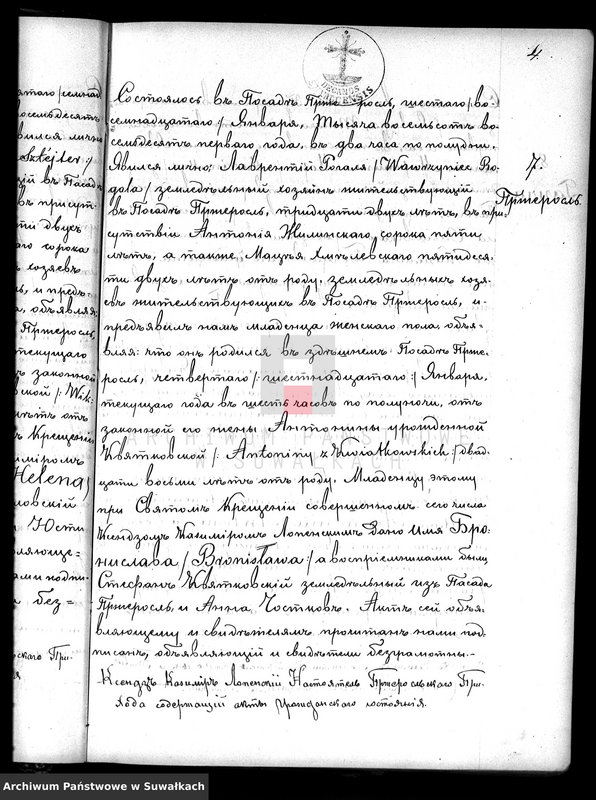 4.
7.
Пржеросль
Состоялось въ Посадѣ Прже росль, шестаго /: во-
семнадцатаго :/ Января, Тысяча восемьсотъ во-
семьдесятъ перваго года, въ два часа по полудни.
Явился лично; Лаврентій Рогаля / Wawrzyniec Ro-
gola / земледѣльный хозяинъ жительствующій
въ Посадѣ Пржеросль, тридцати двухъ лѣтъ, въ при-
сутствіи Антонія Жилинскаго, сорока пяти
лѣтъ, а также, Мацѣя Хмѣлевскаго пятидеся-
ти двухъ лѣтъ отъ роду, земледѣльныхъ хозя-
евъ жительствующихъ въ Посадѣ Пржеросль, и
предъявилъ намъ младенца женскаго пола, объя-
вляя: что онъ родился въ здѣшнемъ Посадѣ Прже-
росль, четвертаго /: шестнадцатаго :/ Января,
текущаго года въ шесть часовъ по полуночи, отъ
законной его жены Антонины урожденной
Квятковской /: Antoniny z Kwiatkowskich :/ двад-
цати восьми лѣтъ отъ роду. Младенцу этому
при Святомъ Крещеніи совершенномъ сего числа
Ксендзомъ Казиміромъ Лопенскимъ дано имя Бро-
нислава / Bronisława :/ а воспріемниками были
Стефанъ Квятковскій земледѣльный изъ Посада
Пржеросль, и Анна Чостковъ. Актъ сей объя-
вляющему и свидѣтелямъ прочитанъ, нами под-
писанъ, объявляющій и свидѣтели безграмотны.
Ксендзъ Казиміръ Лопенскій Настоятель Пржеросльскаго При-
хода содержащій акты гражданскаго состоянія.
ARCHIWUM PAŃSTWOWE
W SUWAŁKACH
Archiwum Państwowe w Suwałkach